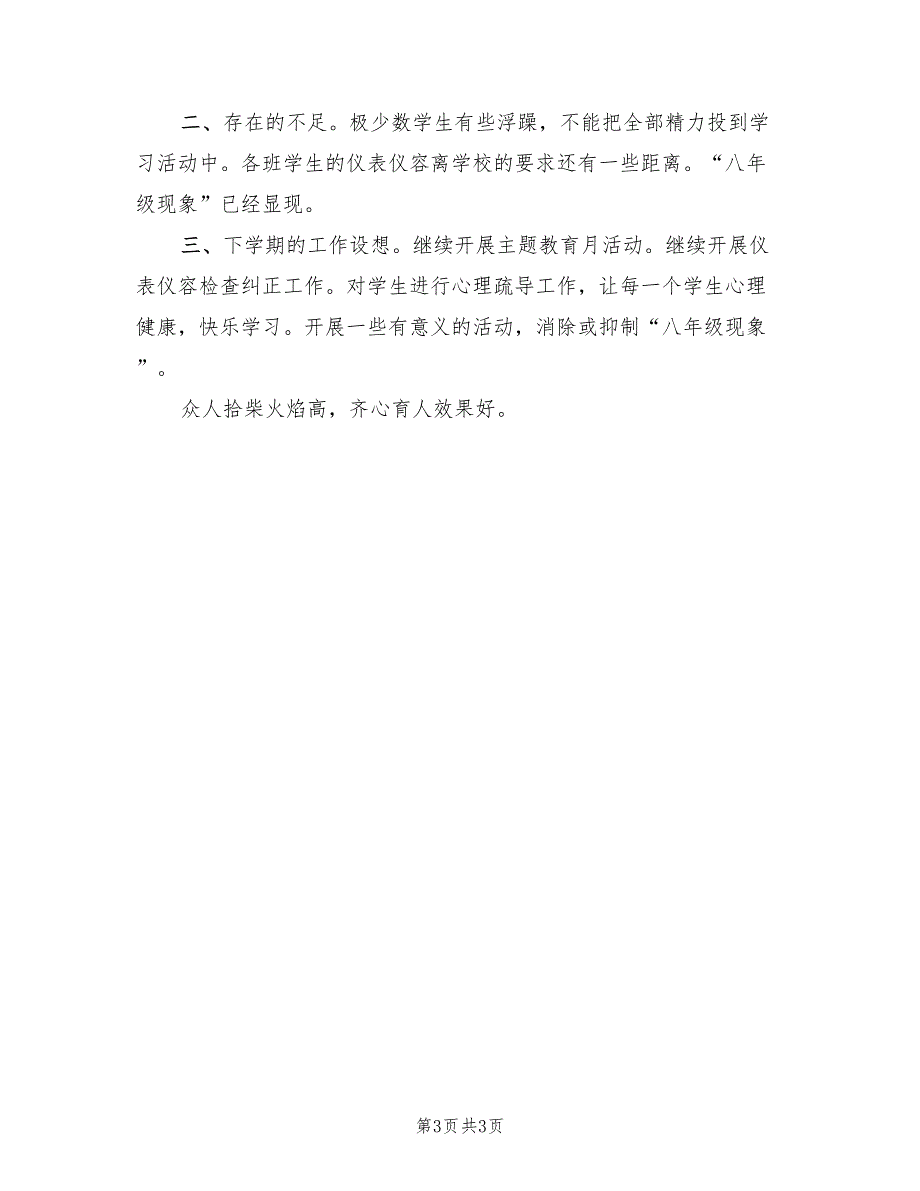 二、存在的不足。极少数学生有些浮躁，不能把全部精力投到学
习活动中。各班学生的仪表仪容离学校的要求还有一些距离。“八年
级现象”已经显现。
三、下学期的工作设想。继续开展主题教育月活动。继续开展仪
表仪容检查纠正工作。对学生进行心理疏导工作，让每一个学生心理
健康，快乐学习。开展一些有意义的活动，消除或抑制“八年级现象
”。
众人拾柴火焰高，齐心育人效果好。
第3页 共3页